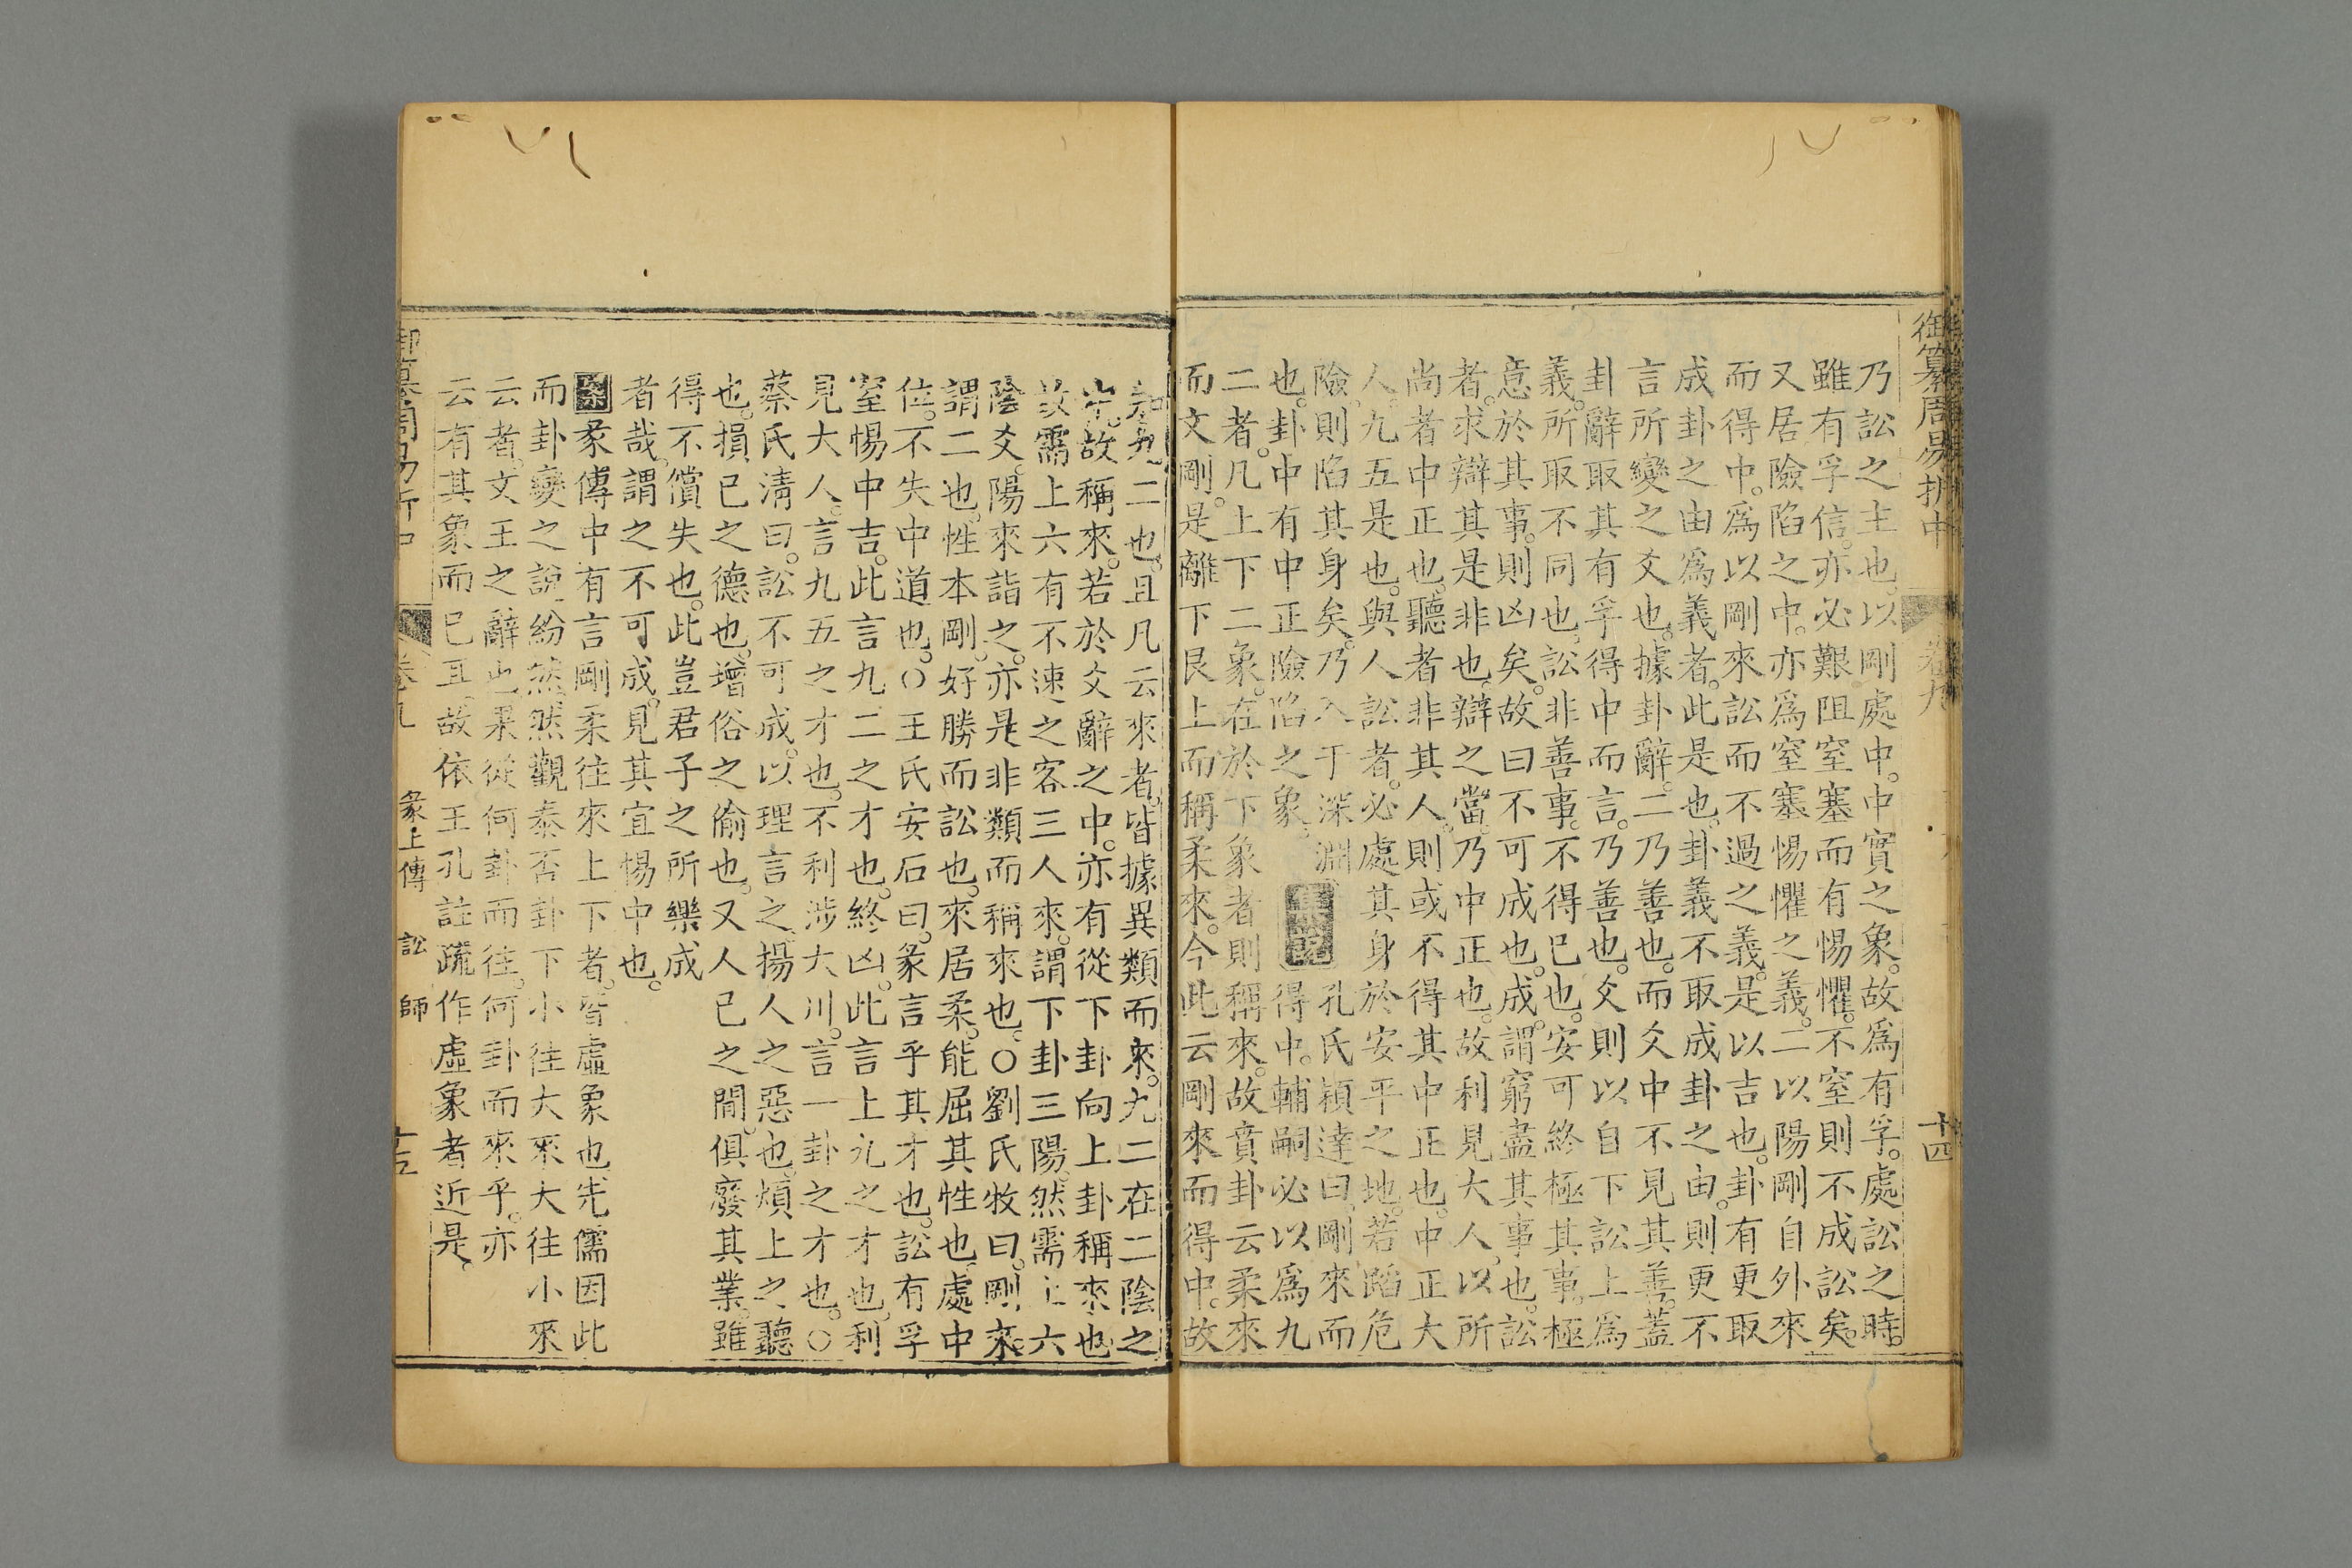 御纂周易折中
卷九
十四
乃訟之主也。以剛處中。中實之象。故爲有孚。處訟之時。
雖有孚信。亦必艱阻窒塞而有惕懼。不窒則不成訟矣。
又居險陷之中。亦爲窒塞惕懼之義。二以陽剛自外來
而得中。爲以剛來訟而不過之義。是以吉也。卦有更取
成卦之由爲義者。此是也。卦義不取成卦之由。則更不
言所變之爻也。據卦辭。二乃善也。而爻中不見其善。蓋
卦辭取其有孚得中而言。乃善也。爻則以自下訟上爲
義。所取不同也。訟非善事。不得已也。安可終極其事。極
意於其事。則凶矣。故曰不可成也。成。謂窮盡其事也。訟
者。求辯其是非也。辯之當。乃中正也。故利見大人。以所
尚者中正也。聽者非其人。則或不得其中正也。中正大
人。九五是也。與人訟者。必處其身於安平之地。若蹈危
險。則陷其身矣。乃入于深淵。孔氏穎達曰。剛來而
也。卦中有中正險陷之象。集說得中。輔嗣必以爲九
二者。凡上下二象。在於下象者則稱來。故賁卦云柔來
而文剛。是離下艮上而稱柔來。今此云剛來而得中。故
知九二也。且凡云來者。皆據異類而來。九二在二陰之
中。故稱來。若於爻辭之中。亦有從下卦向上卦稱來也
故需上六有不速之客三人來。謂下卦三陽。然需上六
陰爻。陽來詣之。亦是非類而稱來也。○劉氏牧曰。剛來
謂二也。性本剛。好勝而訟也。來居柔。能屈其性也。處中
位。不失中道也。○王氏安石曰。彖言乎其才也。訟有孚
窒惕中吉。此言九二之才也。終凶。此言上九之才也。利
見大人。言九五之才也。不利涉大川。言一卦之才也。○
蔡氏淸曰。訟不可成。以理言之。揚人之惡也。煩上之聽
也。損已之德也。增俗之偷也。又人已之閒。俱廢其業。雖
得不償失也。此豈君子之所樂成
者哉。謂之不可成。見其宜惕中也。
案彖傳中有言剛柔往來上下者。皆虛象也先儒因此
而卦變之說紛然。然觀泰否卦下小往大來大往小來
云者。文王之辭也。果從何卦而往。何卦而來乎。亦
云有其象而已耳。故依王孔註疏作虛象者近是。
御纂周易折中
卷九
彖上傳
訟
師
十五